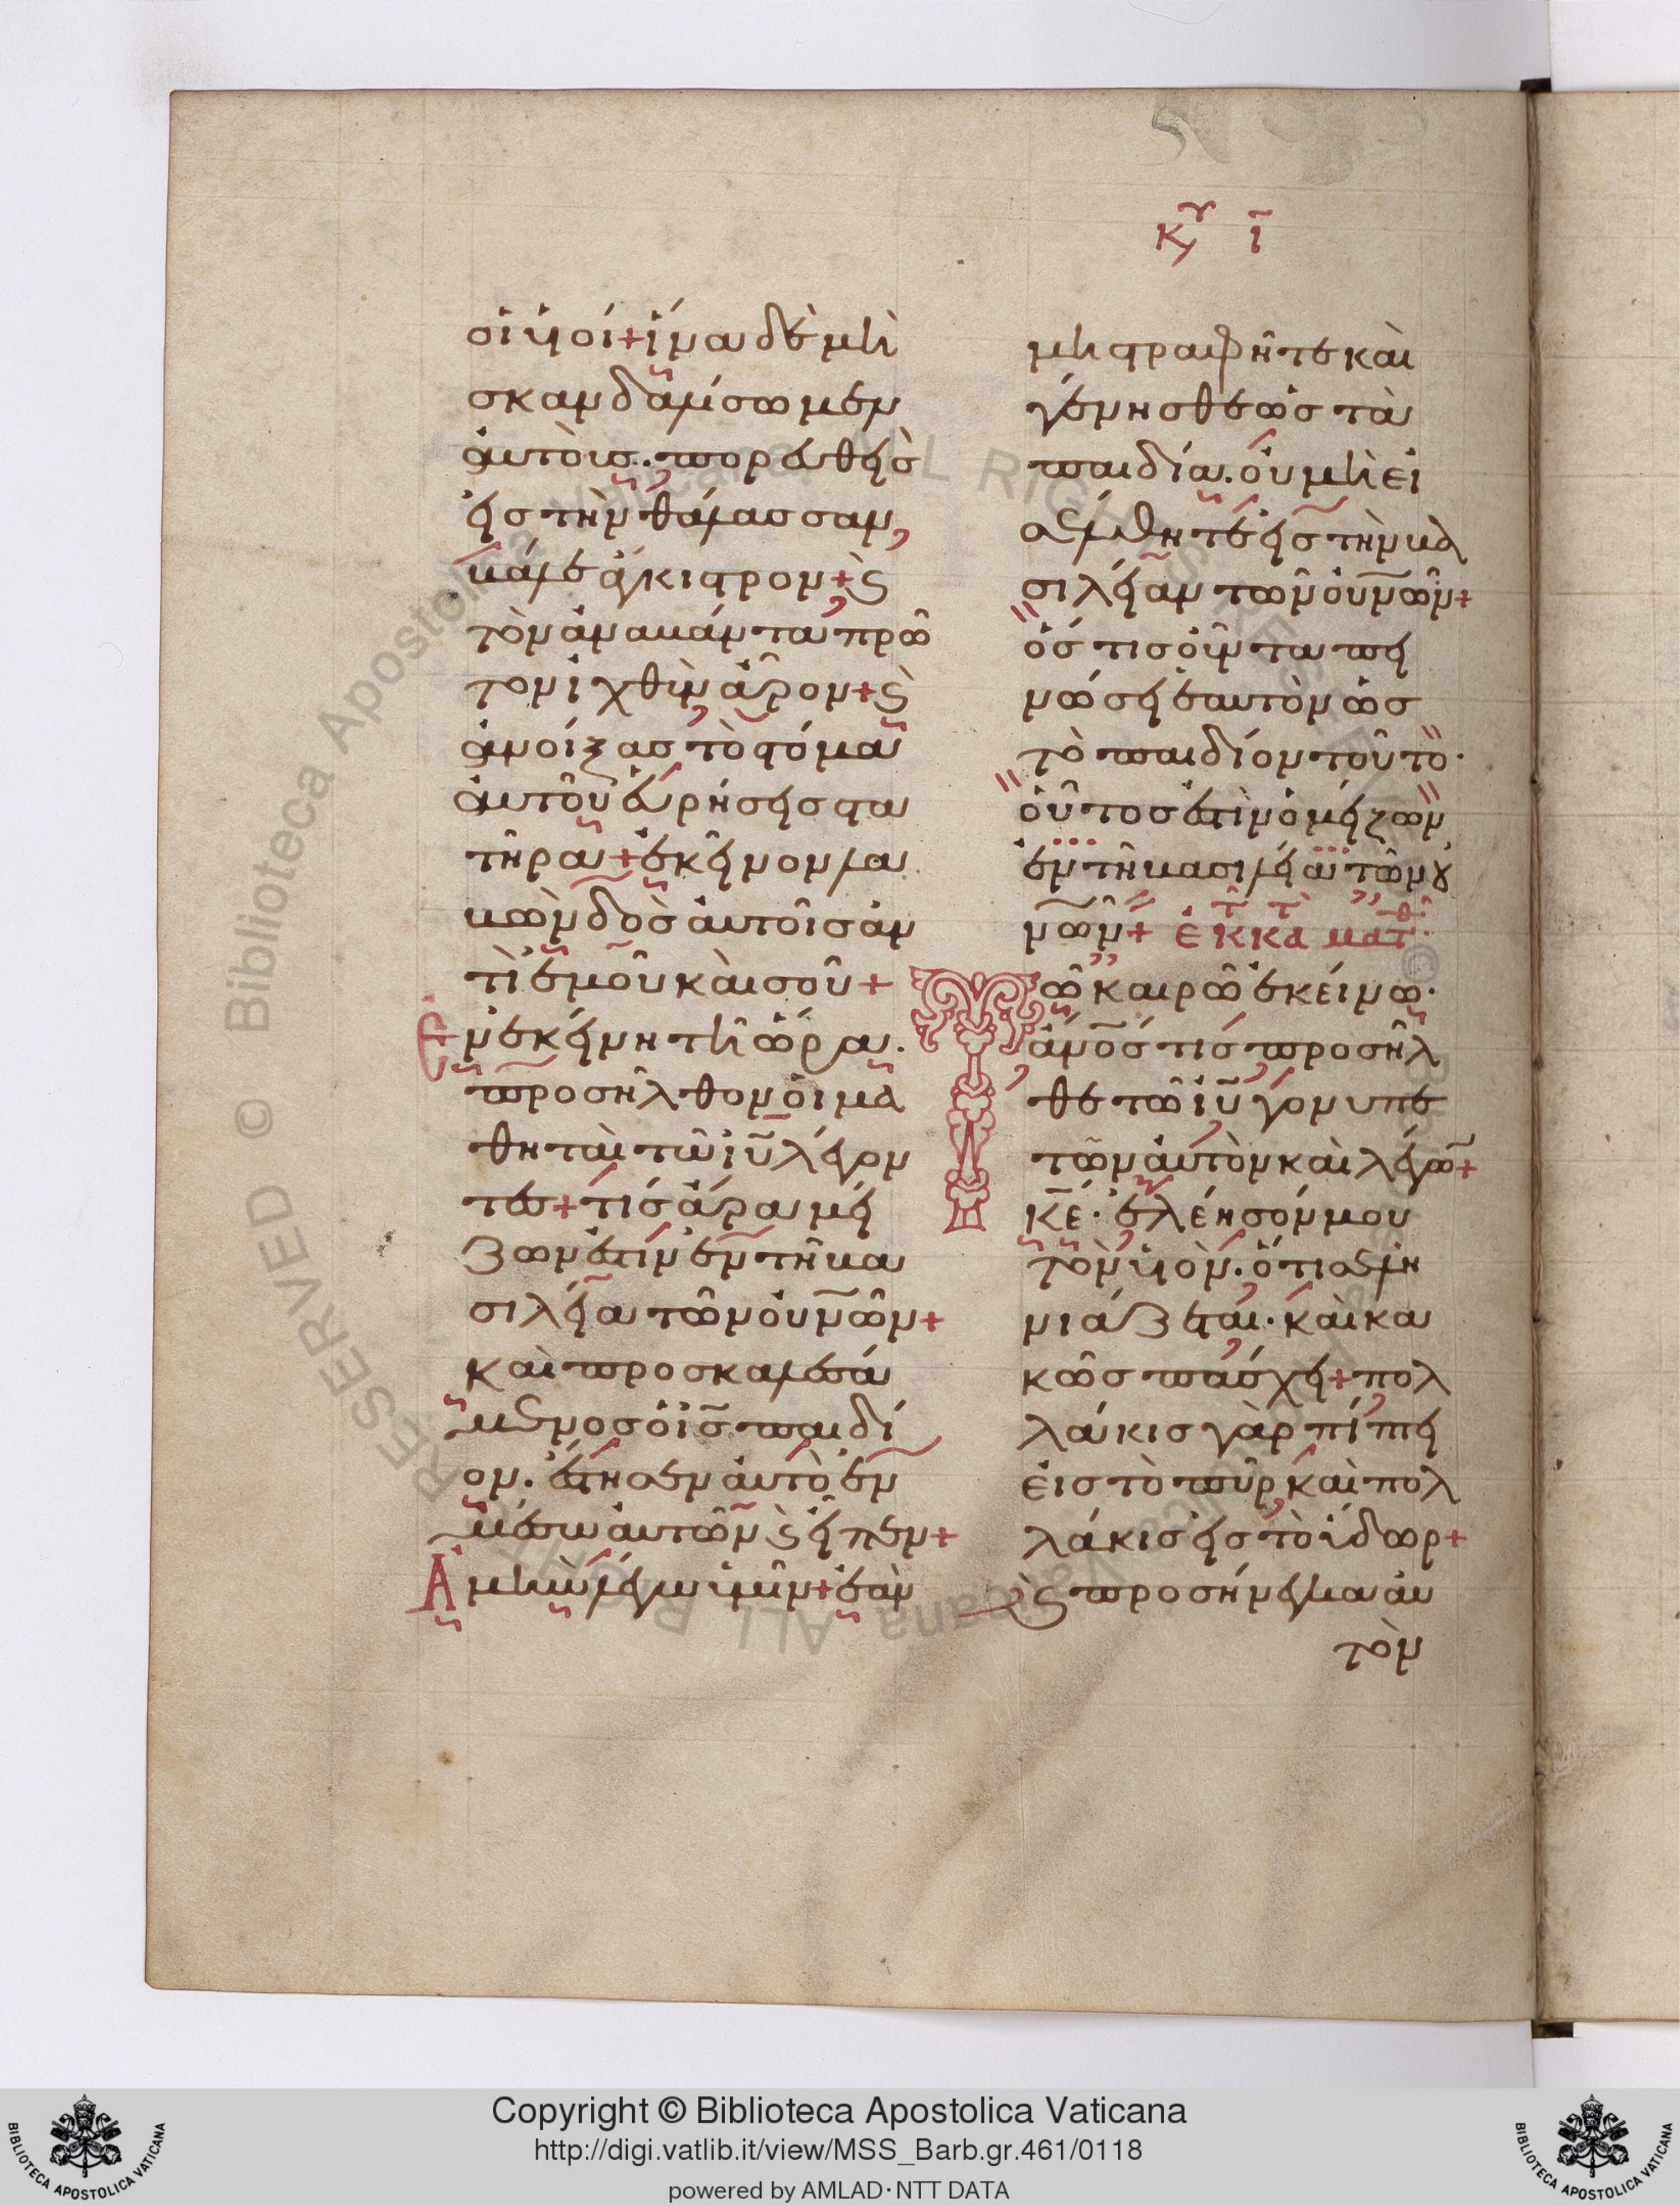 κυ ι
οἱ υἱοί + ἵνα δὲ μὴ
σκανδαλίσωμεν
αὐτοὺσ. πορευθεὶσ
εἰσ τὴν θάλασσαν
βάλε ἄγκιστρον + ϗ
τὸν ἀναβάντα πρῶ
τον ἰχθὺν ἆρον + ϗ
ἀνοίξασ τὸ στόμα
αὐτοῦ εὑρήσεισ στα
τῆρα + ἐκεῖνον λα
βὼν δὸσ αὐτοῖσ ἀν
τὶ ἐμοῦ καὶ σοῦ +
Ἐν ἐκείνη τῆ ὥρα.
προσῆλθον οἱ μα
θηταὶ τῶ ἰῦ λέγον
τεσ + τίσ ἄρα μεί
ζων ἐστὶν ἐν τῆ βα
σιλεία τῶν οὐνῶν +
καὶ προσκαλεσά
μενοσ ὁ ἰσ παιδί
ον. ἔστησεν αὐτὸ ἐν
μέσω αὐτῶν ϗ εἶπεν +
Ἀμὴν λέγω ὑμῖν + ἐὰν
μὴ στραφῆτε καὶ
γένησθε ὡσ τὰ
παιδία. οὐ μὴ εἰ
σέλθητε εἰσ τὴν βα
σιλείαν τῶν οὐνῶν +
ὅστισ οὖν ταπει
νώσει ἑαυτὸν ὡσ
τὸ παιδίον τοῦτο.
οὗτοσ ἐστὶν ὁ μείζων
ἐν τῆ βασιλεία τῶν ȣ
νῶν + ἐκ τ κατ ματθ
Τῶ καιρῶ ἐκείνω.
ἀνοσ τισ προσῆλ
θε τῶ ἰῦ γονυπε
τῶν αὐτὸν καὶ λέγω +
κε. ἐλέησόν μου
τὸν υἱὸν. ὅτι σελη
νιάζεται. καὶ κα
κῶσ πάσχει + πολ
λάκισ γὰρ πίπτει
εἰσ τὸ πῦρ καὶ πολ
λάκισ εἰσ τὸ ὕδωρ +
ϗ προσήνεγκα αὐ
τὸν
Copyright © Biblioteca Apostolica Vaticana
http://digi.vatlib.it/view/MSS_Barb.gr.461/0118
powered by AMLAD·NTT DATA